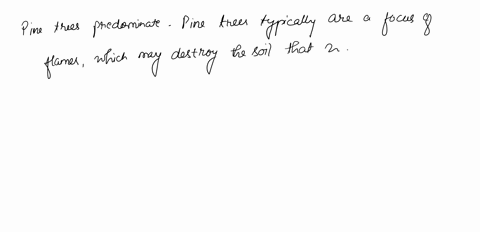 Pine trees predominate. Pine trees typically are a focus of
flames, which may destroy the soil that